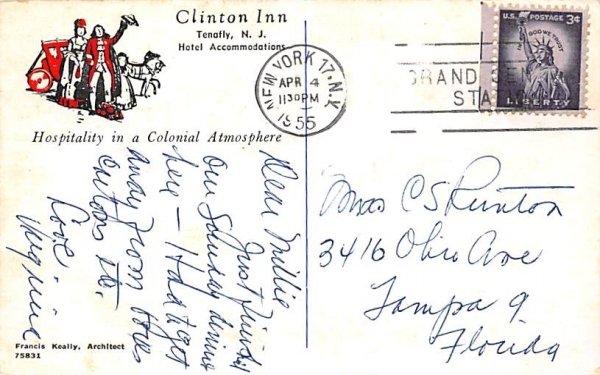 Clinton Inn
Tenafly, N. J.
Hotel Accommodations
Hospitality in a Colonial Atmosphere
Dear Millie
Just finished
our Sunday dinner
here – Had to get
away from
Love
Francis Keally, Architect
75831
NEW YORK 17, N.Y.
APR 4
11 30 PM
1955
GRAND CE
STA
U.S. POSTAGE 3¢
IN GOD WE TRUST
LIBERTY
C S Runton
3416 Ohio Ave
Tampa 9
Florida